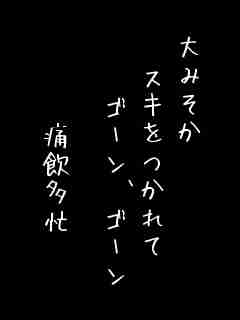 大みそか
スキをつかれて
ゴーン、ゴーン
痛飲多忙